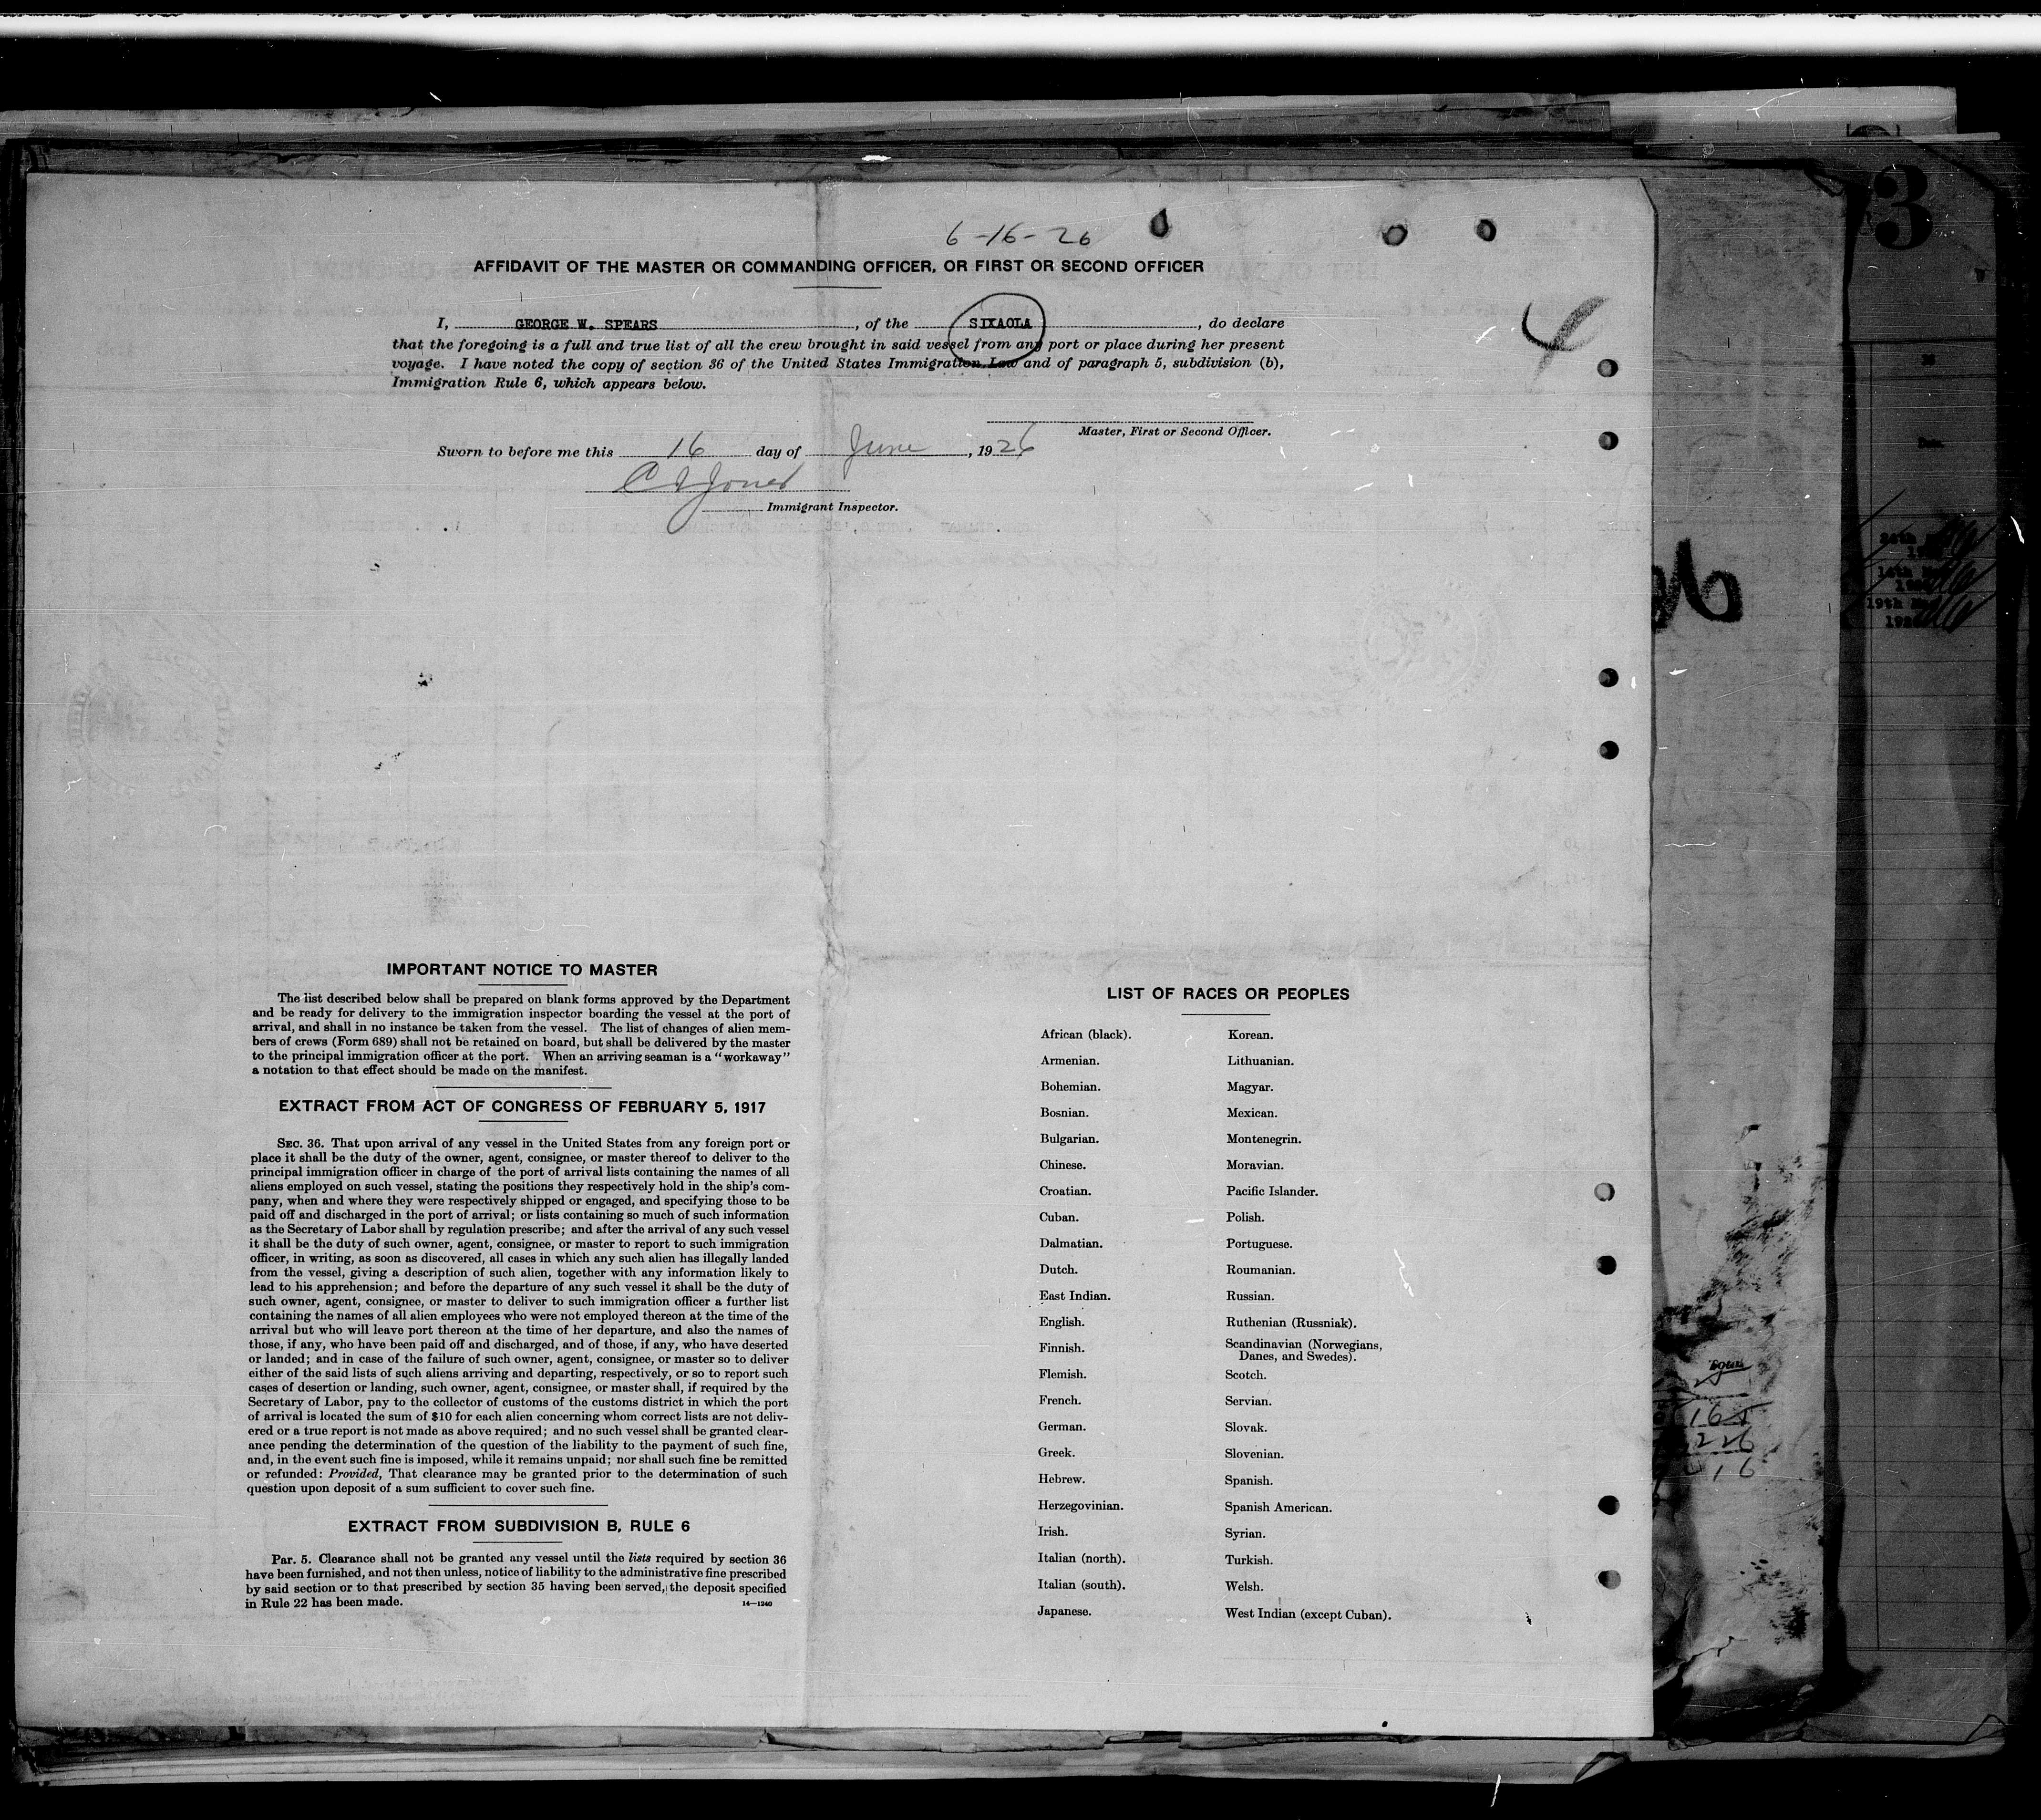 6-16-26
AFFIDAVIT OF THE MASTER OR COMMANDING OFFICER, OR FIRST OR SECOND OFFICER
I, GEORGE W. SPEARS, of the SIXAOLA, do declare
that the foregoing is a full and true list of all the crew brought in said vessel from any port or place during her present
voyage. I have noted the copy of section 36 of the United States Immigration Law and of paragraph 5, subdivision (b),
Immigration Rule 6, which appears below.
4
Master, First or Second Officer.
Sworn to before me this 16 day of June, 1926
C I Jones
Immigrant Inspector.
IMPORTANT NOTICE TO MASTER
The list described below shall be prepared on blank forms approved by the Department
and be ready for delivery to the immigration inspector boarding the vessel at the port of
arrival, and shall in no instance be taken from the vessel. The list of changes of alien mem-
bers of crews (Form 689) shall not be retained on board, but shall be delivered by the master
to the principal immigration officer at the port. When an arriving seaman is a "workaway"
a notation to that effect should be made on the manifest.
EXTRACT FROM ACT OF CONGRESS OF FEBRUARY 5, 1917
SEC. 36. That upon arrival of any vessel in the United States from any foreign port or
place it shall be the duty of the owner, agent, consignee, or master thereof to deliver to the
principal immigration officer in charge of the port of arrival lists containing the names of all
aliens employed on such vessel, stating the positions they respectively hold in the ship's com-
pany, when and where they were respectively shipped or engaged, and specifying those to be
paid off and discharged in the port of arrival; or lists containing so much of such information
as the Secretary of Labor shall by regulation prescribe; and after the arrival of any such vessel
it shall be the duty of such owner, agent, consignee, or master to report to such immigration
officer, in writing, as soon as discovered, all cases in which any such alien has illegally landed
from the vessel, giving a description of such alien, together with any information likely to
lead to his apprehension; and before the departure of any such vessel it shall be the duty of
such owner, agent, consignee, or master to deliver to such immigration officer a further list
containing the names of all alien employees who were not employed thereon at the time of the
arrival but who will leave port thereon at the time of her departure, and also the names of
those, if any, who have been paid off and discharged, and of those, if any, who have deserted
or landed; and in case of the failure of such owner, agent, consignee, or master so to deliver
either of the said lists of such aliens arriving and departing, respectively, or so to report such
cases of desertion or landing, such owner, agent, consignee, or master shall, if required by the
Secretary of Labor, pay to the collector of customs of the customs district in which the port
of arrival is located the sum of $10 for each alien concerning whom correct lists are not deliv-
ered or a true report is not made as above required; and no such vessel shall be granted clear-
ance pending the determination of the question of the liability to the payment of such fine,
and, in the event such fine is imposed, while it remains unpaid; nor shall such fine be remitted
or refunded: Provided, That clearance may be granted prior to the determination of such
question upon deposit of a sum sufficient to cover such fine.
EXTRACT FROM SUBDIVISION B, RULE 6
Par. 5. Clearance shall not be granted any vessel until the lists required by section 36
have been furnished, and not then unless, notice of liability to the administrative fine prescribed
by said section or to that prescribed by section 35 having been served, the deposit specified
in Rule 22 has been made.
14—1240
LIST OF RACES OR PEOPLES
African (black).
Armenian.
Bohemian.
Bosnian.
Bulgarian.
Chinese.
Croatian.
Cuban.
Dalmatian.
Dutch.
East Indian.
English.
Finnish.
Flemish.
French.
German.
Greek.
Hebrew.
Herzegovinian.
Irish.
Italian (north).
Italian (south).
Japanese.
Korean.
Lithuanian.
Magyar.
Mexican.
Montenegrin.
Moravian.
Pacific Islander.
Polish.
Portuguese.
Roumanian.
Russian.
Ruthenian (Russniak).
Scandinavian (Norwegians,
Danes, and Swedes).
Scotch.
Servian.
Slovak.
Slovenian.
Spanish.
Spanish American.
Syrian.
Turkish.
Welsh.
West Indian (except Cuban).
3
Date.
19th